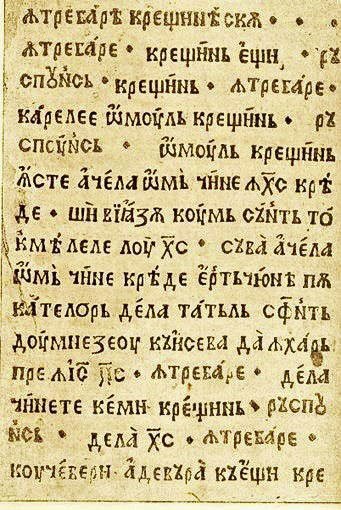 ꙟтребарѣ крещинѣ́скѫ • • •
ꙟтреба́ре • крещи́нь є҆щи • рꙋ
спꙋ́нсь • крещи́нь • ꙟтреба́ре •
ка́релее ѡ҆моу́ль крещи́нь • рꙋ
спꙋ́нсь • ѡ҆моу́ль крещи́нь
ꙗ҆́сте аче́ла ѡ҆́мь чи́не ꙟх҃с крѣ́
де • ши́ вїа́зѫ коу́мь сꙋ́нть то́
кмѣ́леле лоу́ х҃с • сꙋва̀ аче́ла
ѡ҆́мь чи́не крѣ́де є҆ртъчю́не пѫ
ка́телорь де́ла та́тьль сфи́нть
доу́мнеꙁеоу кꙋ́сева да̀ ꙟха́рь
пре ꙟі҆с҃ х҃с • ꙟтреба́ре • де́ла
чи́нете ке́ми кре́щинь • рꙋспꙋ
нсь • дела̀ х҃с • ꙟтреба́ре •
коу́че́вери адевꙋра̀ къе҆́щи кре